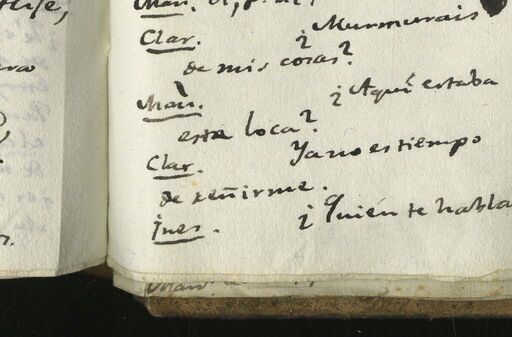 Clar. ¿Murmurais
de mis cosas?
Man. ¿Aqui estaba
esta loca?
Clar. Ya no es tiempo
de reñirme.
Ines. ¿Quién te habla